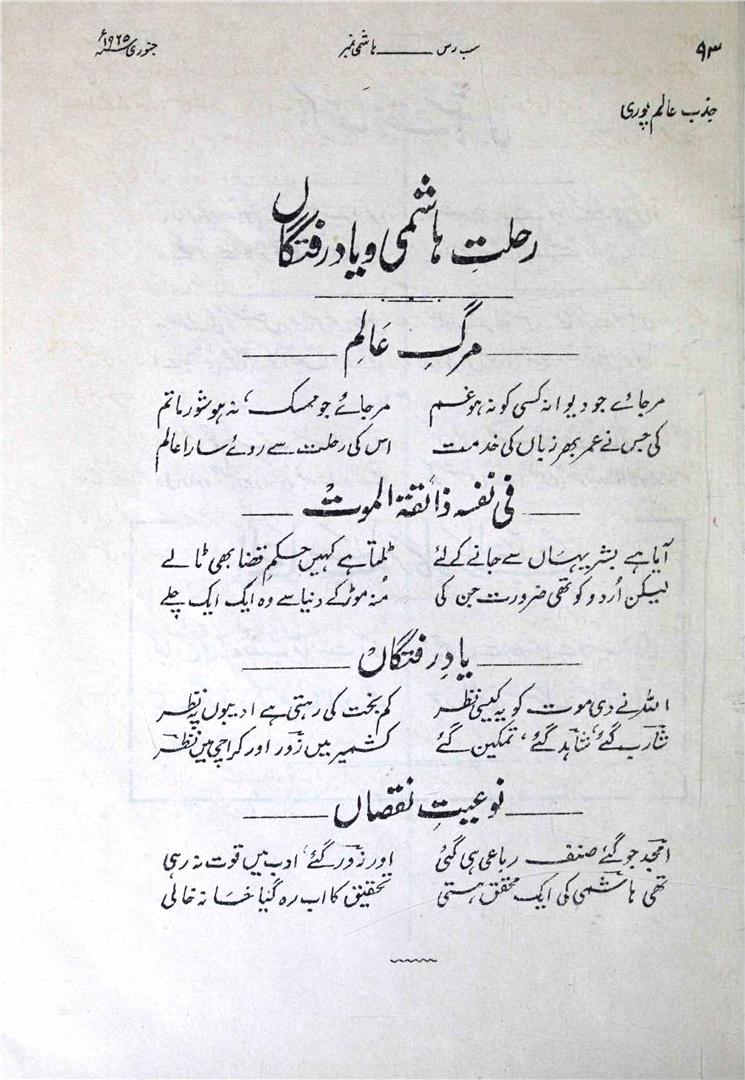 ۹۳ سب رس ــــــ ہاشمی نمبر جنوری ۱۹۶۵ء
جذب عالم پوری
رحلتِ ہاشمی و یادِ رفتگاں
مرگِ عَالِم
مرجائے جو دیوانہ کسی کو نہ ہو غم مرجائے جو ممسک، نہ ہو شورِ ماتم
کی جس نے عمر بھر زباں کی خدمت اس کی رحلت سے روئے سارا عالم
فی نفسہ ذائقۃ الموت
آیا ہے بشر یہاں سے جانے کے لئے ٹلتا ہے کہیں حکمِ قضا بھی ٹالے
لیکن اُردو کو تھی ضرورت جن کی مُنہ موڑ کے دنیا سے وہ ایک ایک چلے
یادِ رفتگاں
اللہ نے دی موت کو یہ کیسی نظر کم بخت کی رہتی ہے ادیبوں پہ نظر
شارب گئے، شاہد گئے، تمکین گئے کشمیر میں زور اور کراچی میں نظر
نوعیتِ نقصاں
امجد جو گئے صنف رباعی ہی گئی اور زور گئے، ادب میں قوت نہ رہی
تھی ہاشمی کی ایک محقق ہستی تحقیق کا اب رہ گیا خانہ خالی